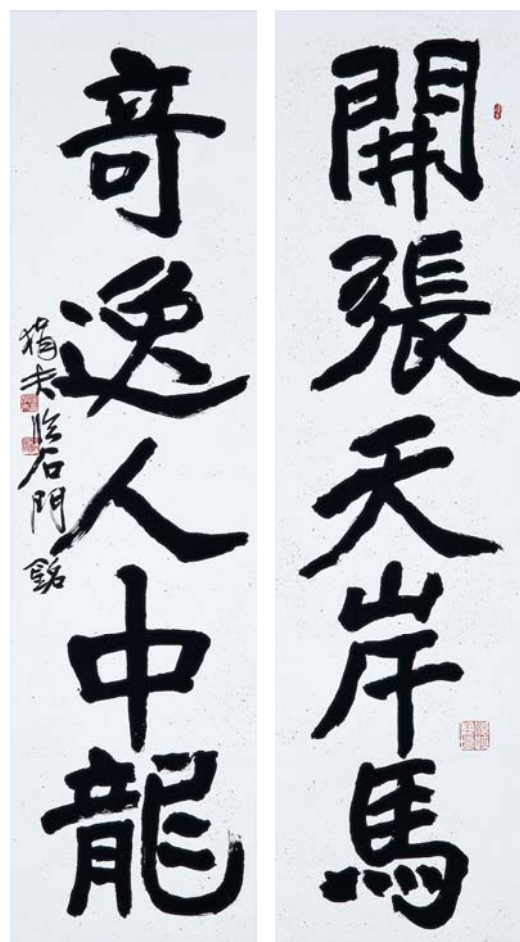 開張天岸馬
奇逸人中龍
狷夫臨石門銘